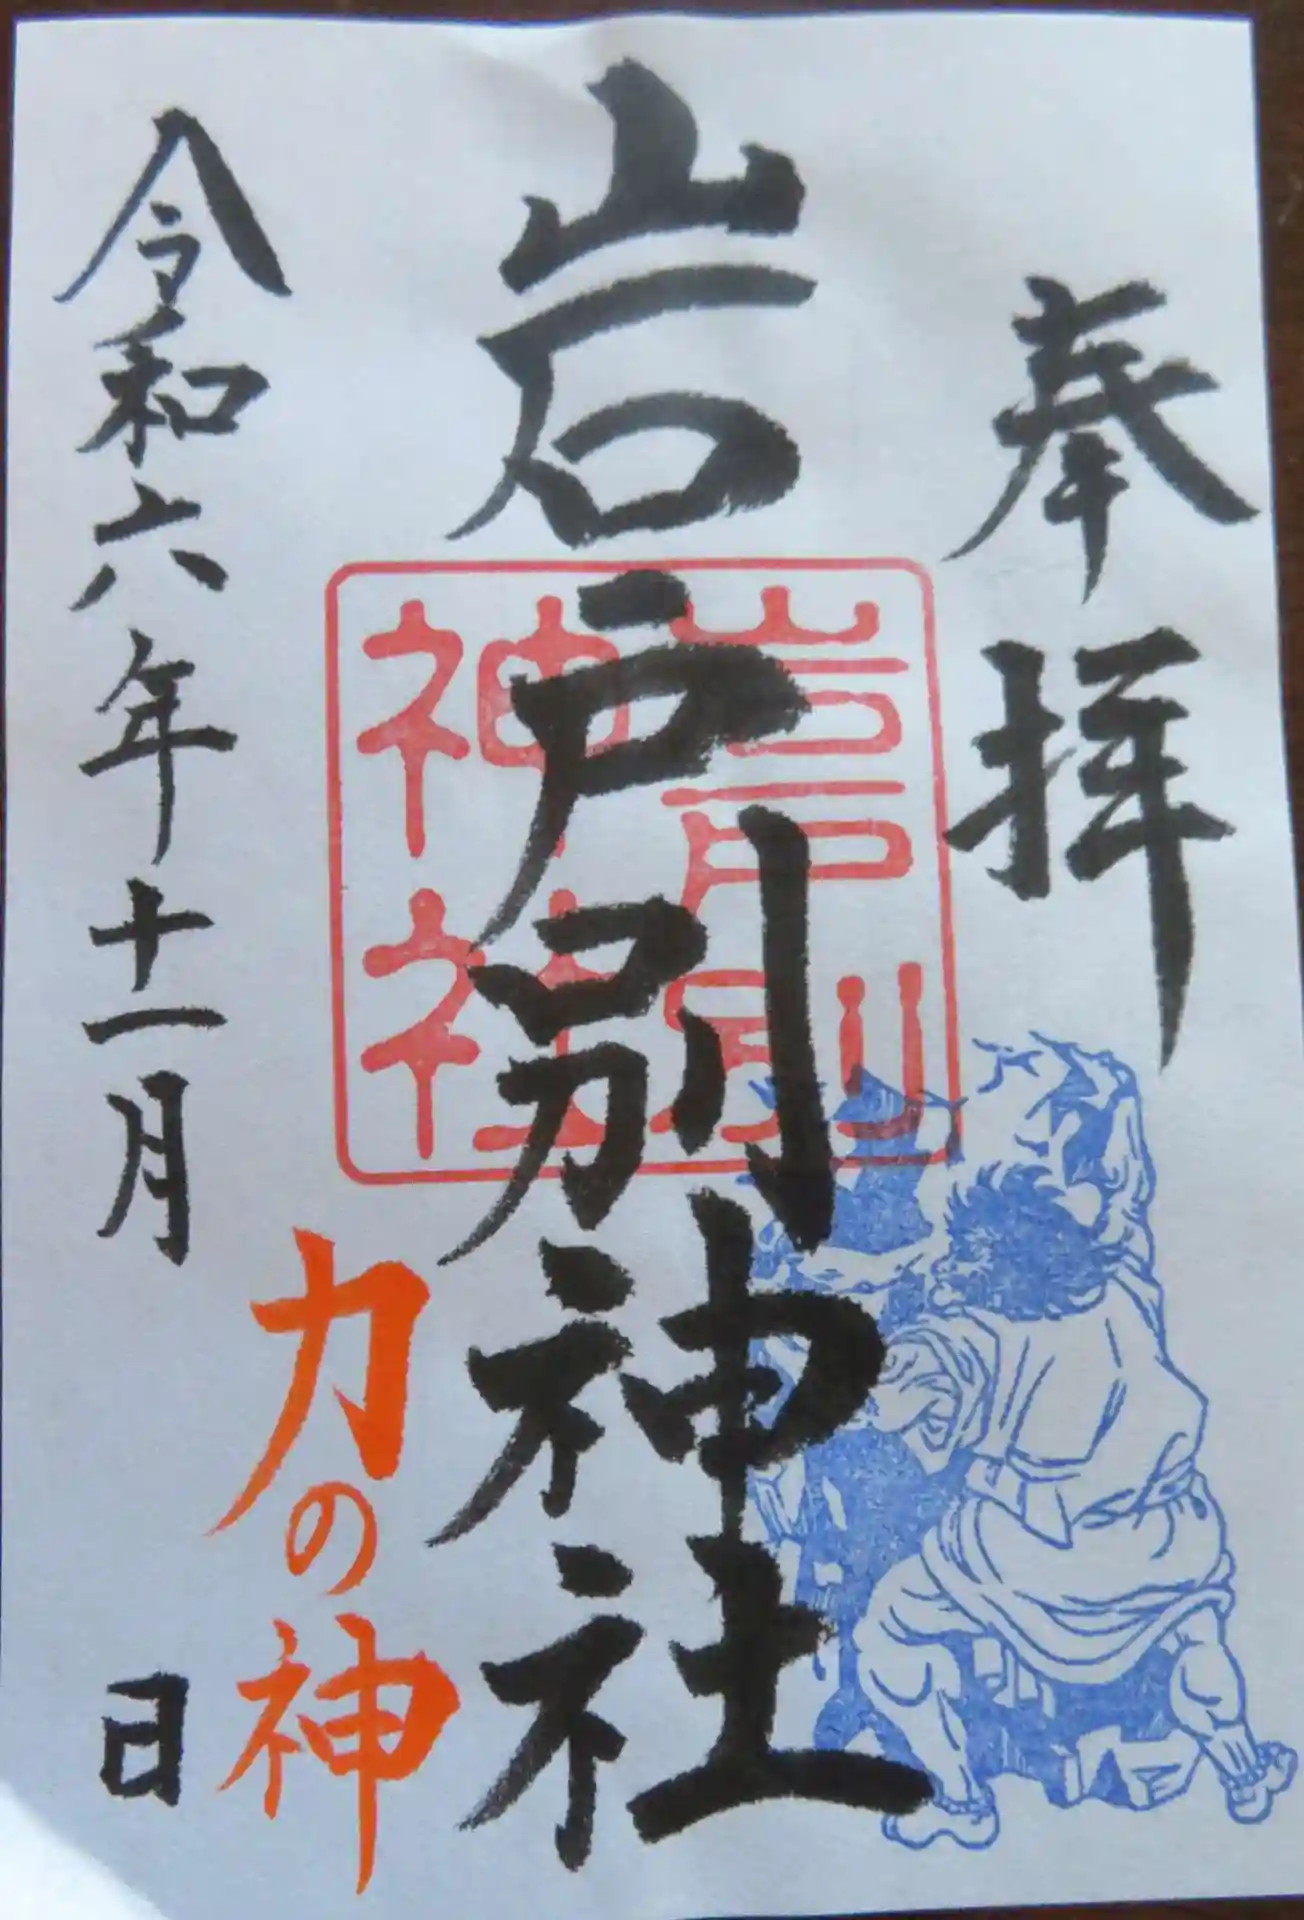 奉拝
岩戸別神社
岩戸別
神社
力の神
令和六年十一月　日